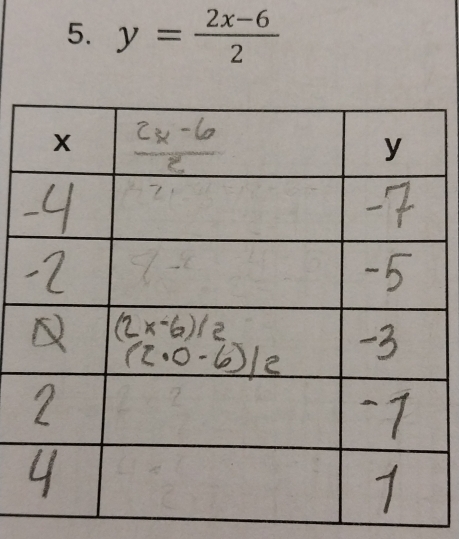 5. y = 2x-6
2
x 2x-6 y
2
-4 -7
-2 -5
0 (2x-6)/2 -3
(2•0-6)/2
2 -1
4 1